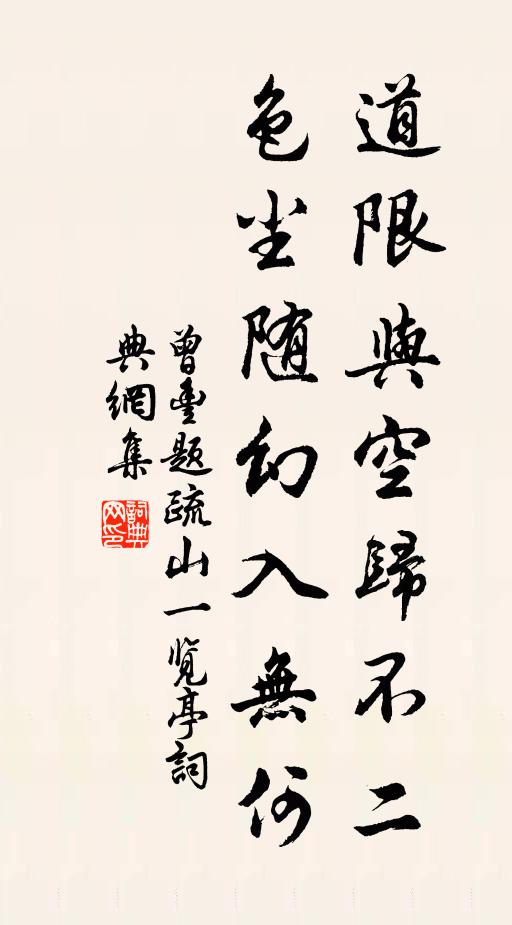 道限與空歸不二
色尘随幻入無何
曾豐题疏山一览亭詞
典網集
詞典网印